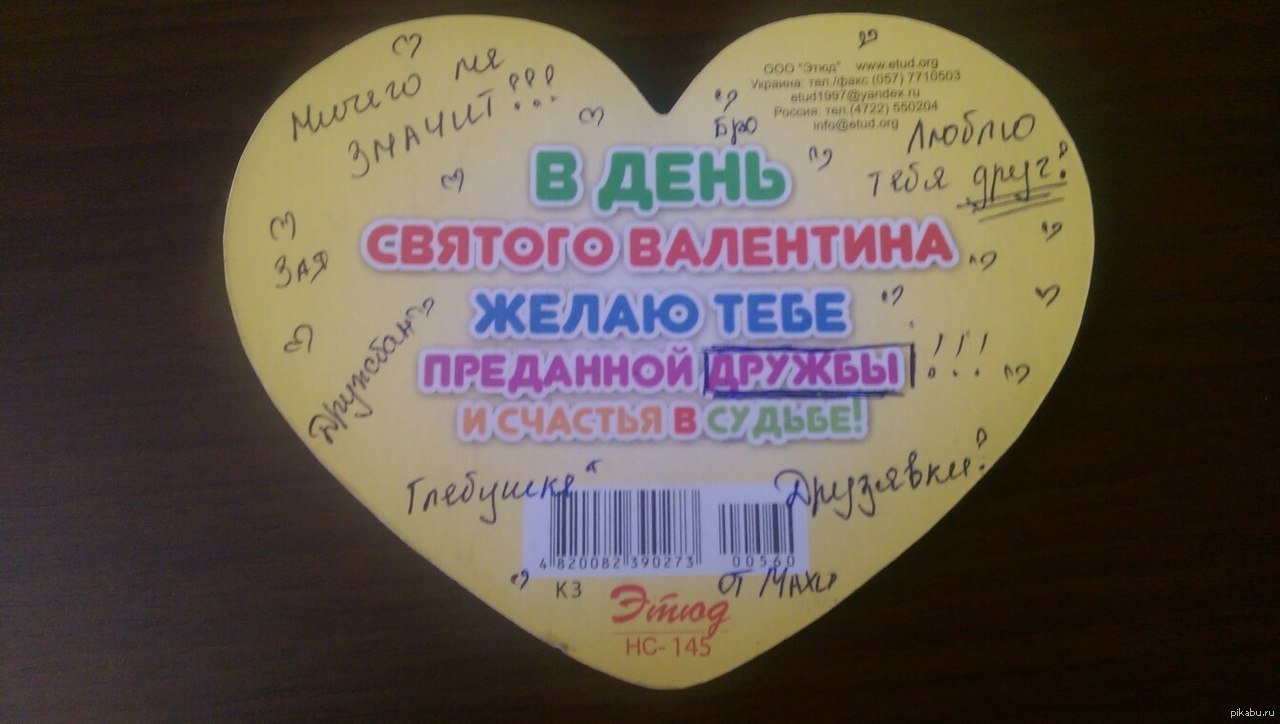 Ничего не
значит!!!
ООО "Этюд" www.etud.org
Украина: тел./факс (057) 7710503
etud1997@yandex.ru
Россия: тел.(4722) 550204
info@etud.org
Бро
Люблю
тебя друг!
В ДЕНЬ
СВЯТОГО ВАЛЕНТИНА
Зая
ЖЕЛАЮ ТЕБЕ
ПРЕДАННОЙ ДРУЖБЫ !!!
И СЧАСТЬЯ В СУДЬБЕ!
Дружбан
Глебушке
Друзявки!
4 820082 390273 00560
К3
от Махи
Этюд
НС-145
pikabu.ru